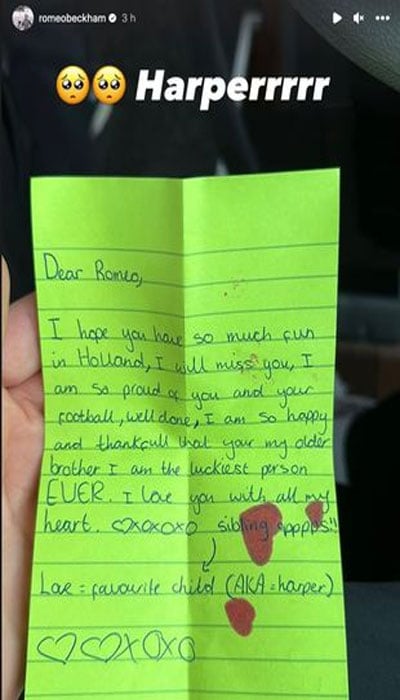 romeobeckham 3 h
🥺🥺 Harperrrrr
Dear Romeo,
I hope you have so much fun
in Holland, I will miss you, I
am so proud of you and your
football, well done, I am so happy
and thankfull that your my older
brother I am the luckiest person
EVER. I love you with all my
heart. ♡xoxoxo sibling
Love = favourite child (AKA = harper)
♡♡XOXO